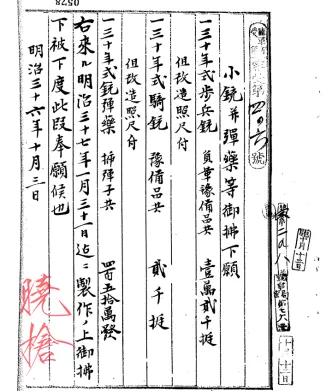 第四〇六號
小銃并彈藥等御拂下願
一三十年式步兵銃 負革豫備品共 壹萬貳千挺
但改造照尺付
一三十年式騎銃 豫備品共 貳千挺
但改造照尺付
一三十年式銃彈藥 挿彈子共 四百五拾萬發
右來ル明治三十七年一月三十一日迄ニ製作ノ上御拂
下被下度此段奉願候也
明治三十六年十月三日
曉槍
0578